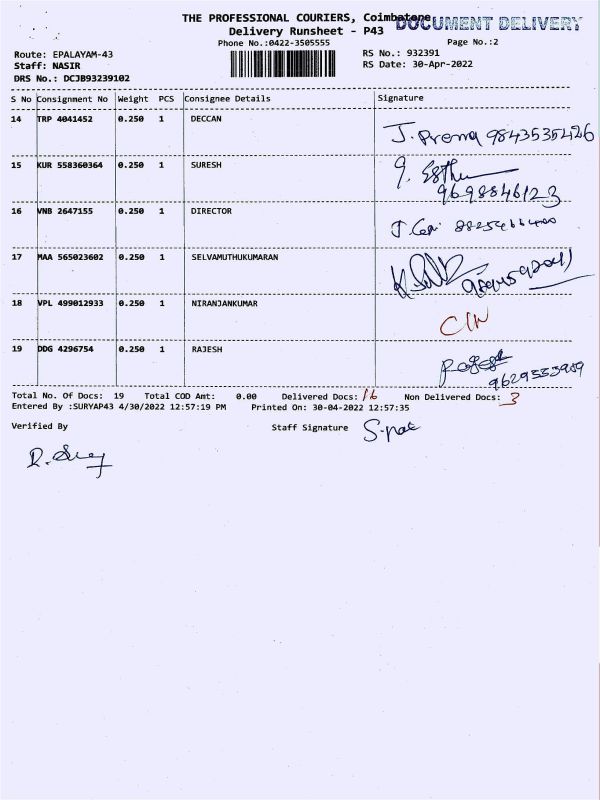 THE PROFESSIONAL COURIERS, Coimbatore
DOCUMENT DELIVERY
Delivery Runsheet - P43
Phone No.:0422-3505555
Page No.:2
Route: EPALAYAM-43
RS No.: 932391
Staff: NASIR
RS Date: 30-Apr-2022
DRS No.: DCJB93239102
S No Consignment No Weight PCS Consignee Details Signature
14 TRP 4041452 0.250 1 DECCAN
J. Prema 9843535426
15 KUR 558360364 0.250 1 SURESH
9698846123
16 VNB 2647155 0.250 1 DIRECTOR
17 MAA 565023602 0.250 1 SELVAMUTHUKUMARAN
18 VPL 499012933 0.250 1 NIRANJANKUMAR
19 DDG 4296754 0.250 1 RAJESH
Total No. Of Docs: 19 Total COD Amt: 0.00 Delivered Docs: 16 Non Delivered Docs: 3
Entered By :SURYAP43 4/30/2022 12:57:19 PM Printed On: 30-04-2022 12:57:35
Verified By Staff Signature